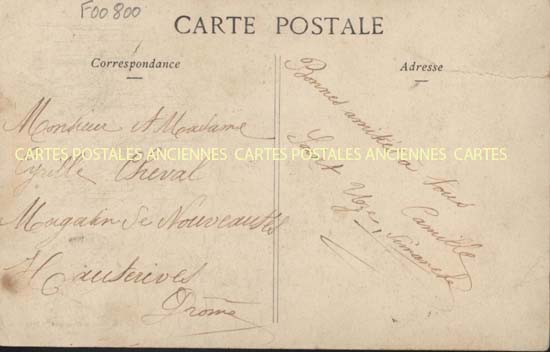 F00800
CARTE POSTALE
Correspondance
Adresse
Monsieur et Madame
CARTES POSTALES ANCIENNES CARTES POSTALES ANCIENNES CARTES
Cyrille Cheval
Magasin de Nouveautés
Hauterives
Drôme
Bonnes amitiés a tous
Camille
Saint Uze, Dimanche